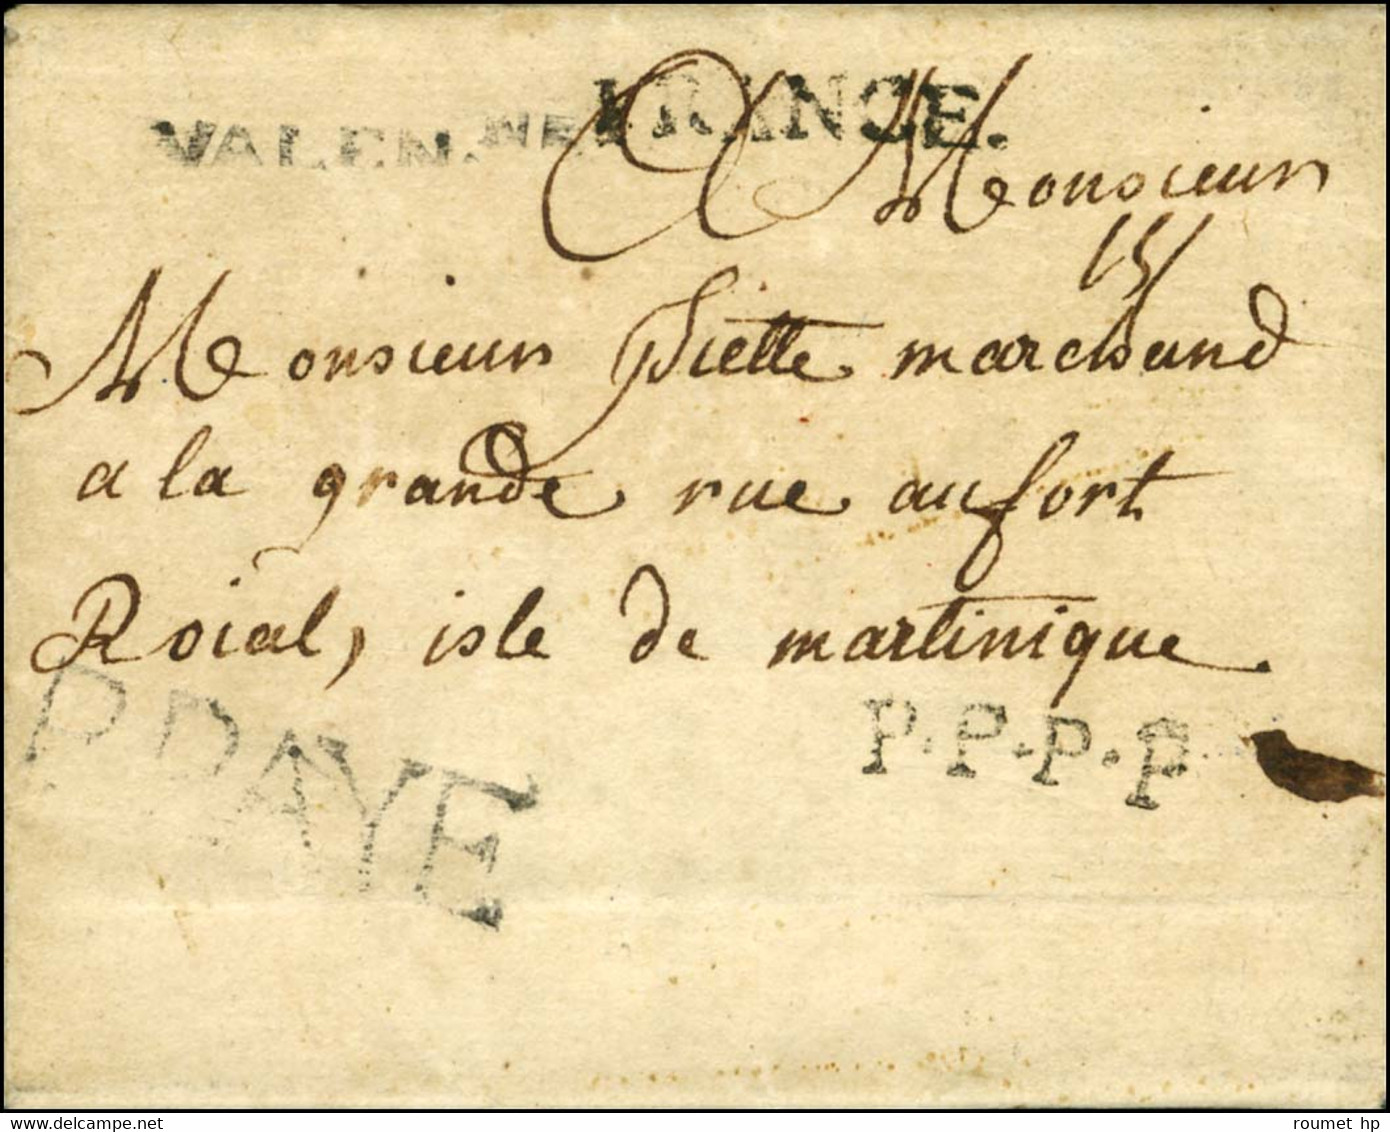 VALEN.NES FRANCE.
A Monsieur
15
Monsieur Piette marchand
a la grande rue au fort
Roial, isle de martinique.
P.PAYE
P.P.P.P
roumet hp
www.delcampe.net